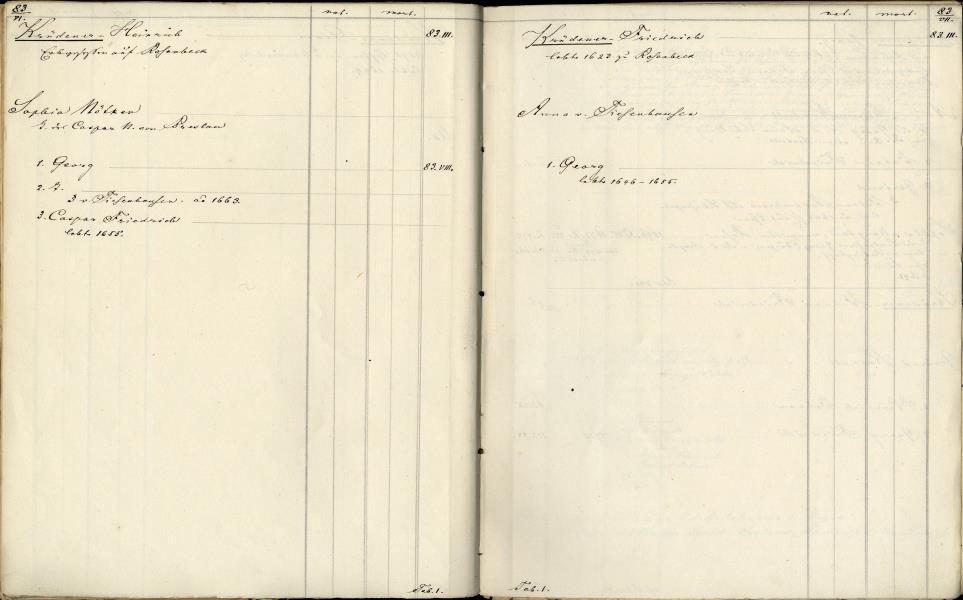 83
VI.
nat. mort.
Krüdener - Heinrich 83.III.
Erbgesessen auf Rosenbeck
Sophia Nötken
T. des Caspar N. von
1. Georg 83.VIII.
2. T.
3 v. Tiesenhausen. ao 1663.
3. Caspar Friedrich
lebte 1655.
Tab. 1.
83
VII.
nat. mort.
Krüdener - Friedrich 83.III.
lebte 1623 zu Rosenbeck
Anna v. Tiesenhausen
1. Georg
lebte 1646 - 1655.
Tab. 1.